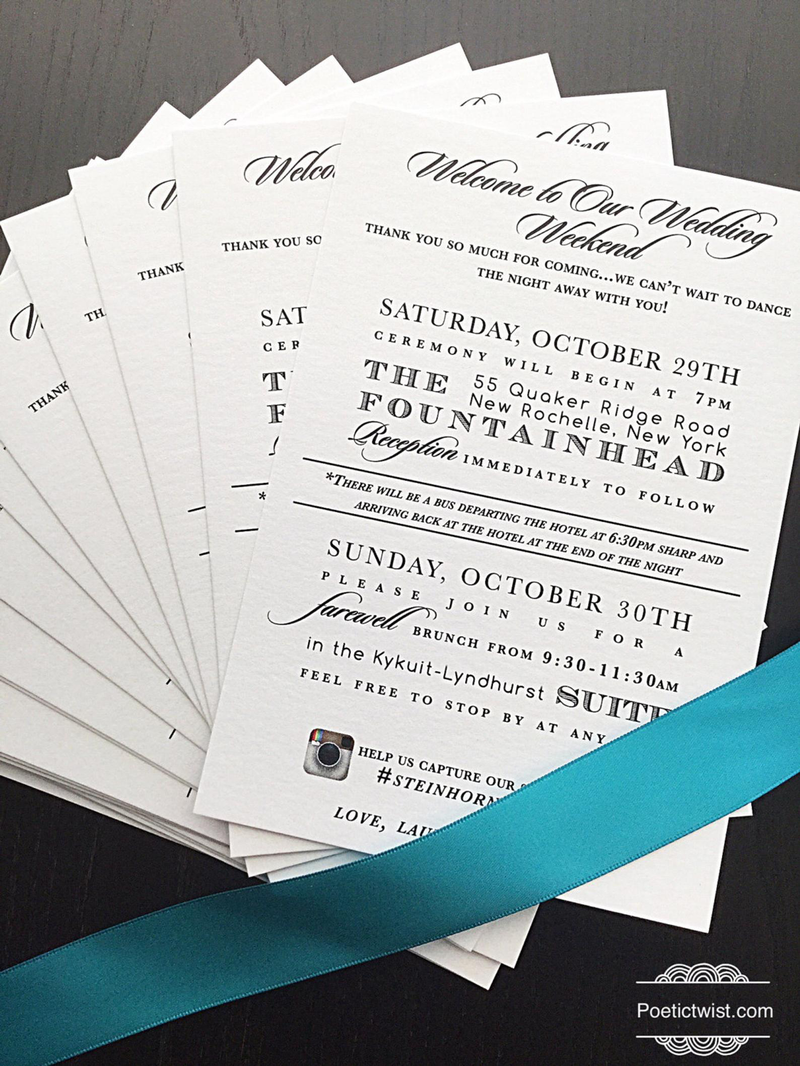 Welcome to Our Wedding
Weekend
THANK YOU SO MUCH FOR COMING...WE CAN'T WAIT TO DANCE
THE NIGHT AWAY WITH YOU!
SATURDAY, OCTOBER 29TH
CEREMONY WILL BEGIN AT 7PM
THE 55 Quaker Ridge Road
New Rochelle, New York
FOUNTAINHEAD
Reception IMMEDIATELY TO FOLLOW
*THERE WILL BE A BUS DEPARTING THE HOTEL AT 6:30PM SHARP AND
ARRIVING BACK AT THE HOTEL AT THE END OF THE NIGHT
SUNDAY, OCTOBER 30TH
PLEASE JOIN US FOR A
farewell BRUNCH FROM 9:30-11:30AM
in the Kykuit-Lyndhurst SUITE
FEEL FREE TO STOP BY AT ANY
HELP US CAPTURE OUR
#STEINHORN
LOVE, LAU
THANK YOU SO
THANK
THANK
Poetictwist.com